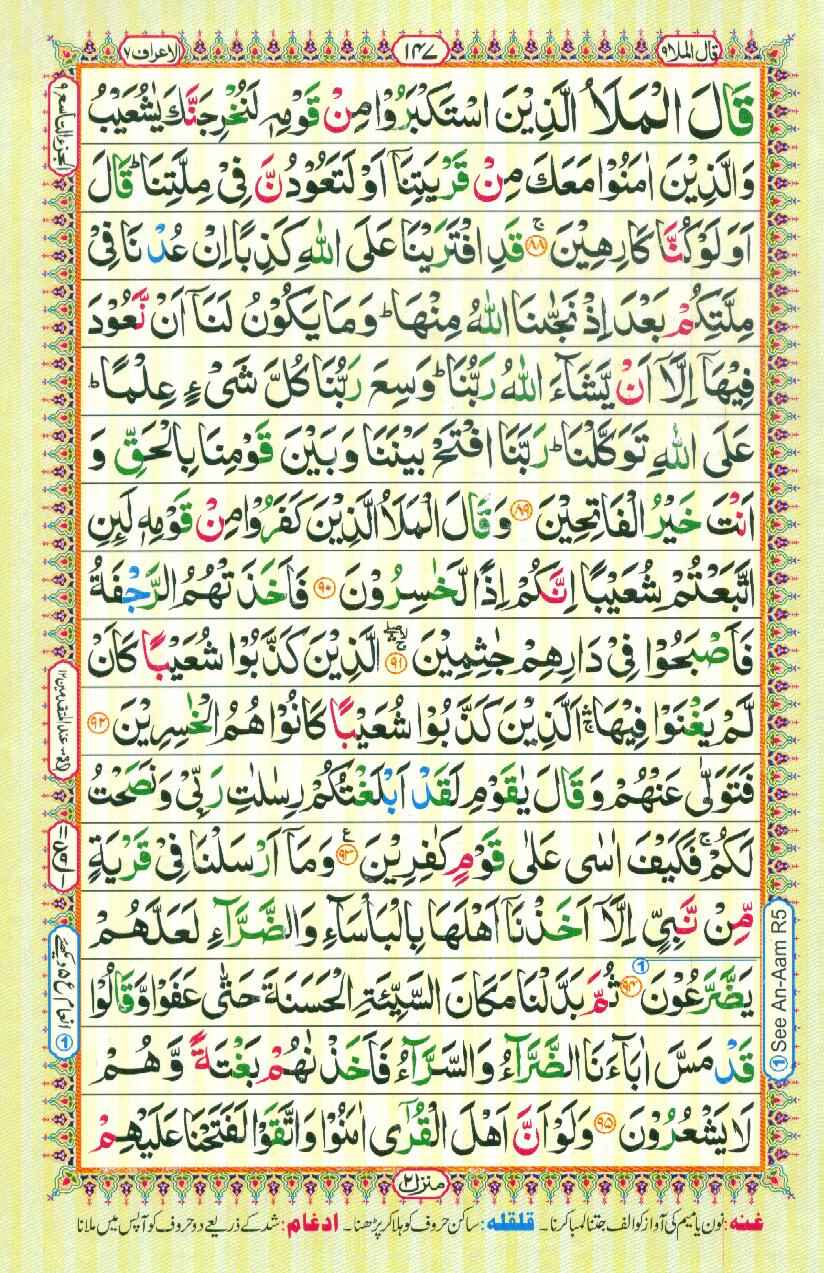 قال الملا ٩
١٤٧
الاعراف ٧
قَالَ الْمَلَاُ الَّذِيْنَ اسْتَكْبَرُوْا مِنْ قَوْمِهٖ لَنُخْرِجَنَّكَ يٰشُعَيْبُ
وَالَّذِيْنَ اٰمَنُوْا مَعَكَ مِنْ قَرْيَتِنَاۤ اَوْ لَتَعُوْدُنَّ فِىْ مِلَّتِنَا ؕ قَالَ
اَوَلَوْ كُنَّا كَارِهِيْنَ ۚ ﴿٨٨﴾ قَدِ افْتَرَيْنَا عَلَى اللّٰهِ كَذِبًا اِنْ عُدْنَا فِىْ
مِلَّتِكُمْ بَعْدَ اِذْ نَجّٰٮنَا اللّٰهُ مِنْهَا ؕ وَمَا يَكُوْنُ لَنَاۤ اَنْ نَّعُوْدَ
فِيْهَاۤ اِلَّاۤ اَنْ يَّشَآءَ اللّٰهُ رَبُّنَا ؕ وَسِعَ رَبُّنَا كُلَّ شَىْءٍ عِلْمًا ؕ
عَلَى اللّٰهِ تَوَكَّلْنَا ؕ رَبَّنَا افْتَحْ بَيْنَنَا وَبَيْنَ قَوْمِنَا بِالْحَقِّ وَ
اَنْتَ خَيْرُ الْفَاتِحِيْنَ ﴿٨٩﴾ وَقَالَ الْمَلَاُ الَّذِيْنَ كَفَرُوْا مِنْ قَوْمِهٖ لَئِنِ
اتَّبَعْتُمْ شُعَيْبًا اِنَّكُمْ اِذًا لَّخٰسِرُوْنَ ﴿٩٠﴾ فَاَخَذَتْهُمُ الرَّجْفَةُ
فَاَصْبَحُوْا فِىْ دَارِهِمْ جٰثِمِيْنَ ﴿٩١﴾ الَّذِيْنَ كَذَّبُوْا شُعَيْبًا كَاَنْ
لَّمْ يَغْنَوْا فِيْهَا ۛۚ اَلَّذِيْنَ كَذَّبُوْا شُعَيْبًا كَانُوْا هُمُ الْخٰسِرِيْنَ ﴿٩٢﴾
فَتَوَلّٰى عَنْهُمْ وَقَالَ يٰقَوْمِ لَقَدْ اَبْلَغْتُكُمْ رِسٰلٰتِ رَبِّىْ وَنَصَحْتُ
لَكُمْ ۚ فَكَيْفَ اٰسٰى عَلٰى قَوْمٍ كٰفِرِيْنَ ﴿٩٣﴾ ع وَمَاۤ اَرْسَلْنَا فِىْ قَرْيَةٍ
مِّنْ نَّبِىٍّ اِلَّاۤ اَخَذْنَاۤ اَهْلَهَا بِالْبَاْسَآءِ وَالضَّرَّآءِ لَعَلَّهُمْ
يَضَّرَّعُوْنَ ﴿٩٤﴾ ① ثُمَّ بَدَّلْنَا مَكَانَ السَّيِّئَةِ الْحَسَنَةَ حَتّٰى عَفَوْا وَّقَالُوْا
قَدْ مَسَّ اٰبَآءَنَا الضَّرَّآءُ وَالسَّرَّآءُ فَاَخَذْنٰهُمْ بَغْتَةً وَّهُمْ
لَا يَشْعُرُوْنَ ﴿٩٥﴾ وَلَوْ اَنَّ اَهْلَ الْقُرٰٓى اٰمَنُوْا وَاتَّقَوْا لَفَتَحْنَا عَلَيْهِمْ
منزل ٢
غنه: نون یا میم کی آواز کو الف جتنا لمبا کرنا۔ قلقله: ساکن حروف کو ہلا کر پڑھنا۔ ادغام: شد کے ذریعے دو حروف کو آپس میں ملانا
الجزء التاسع ٩
① انعام ع ٥ دیکھئے
① See An-Aam R5